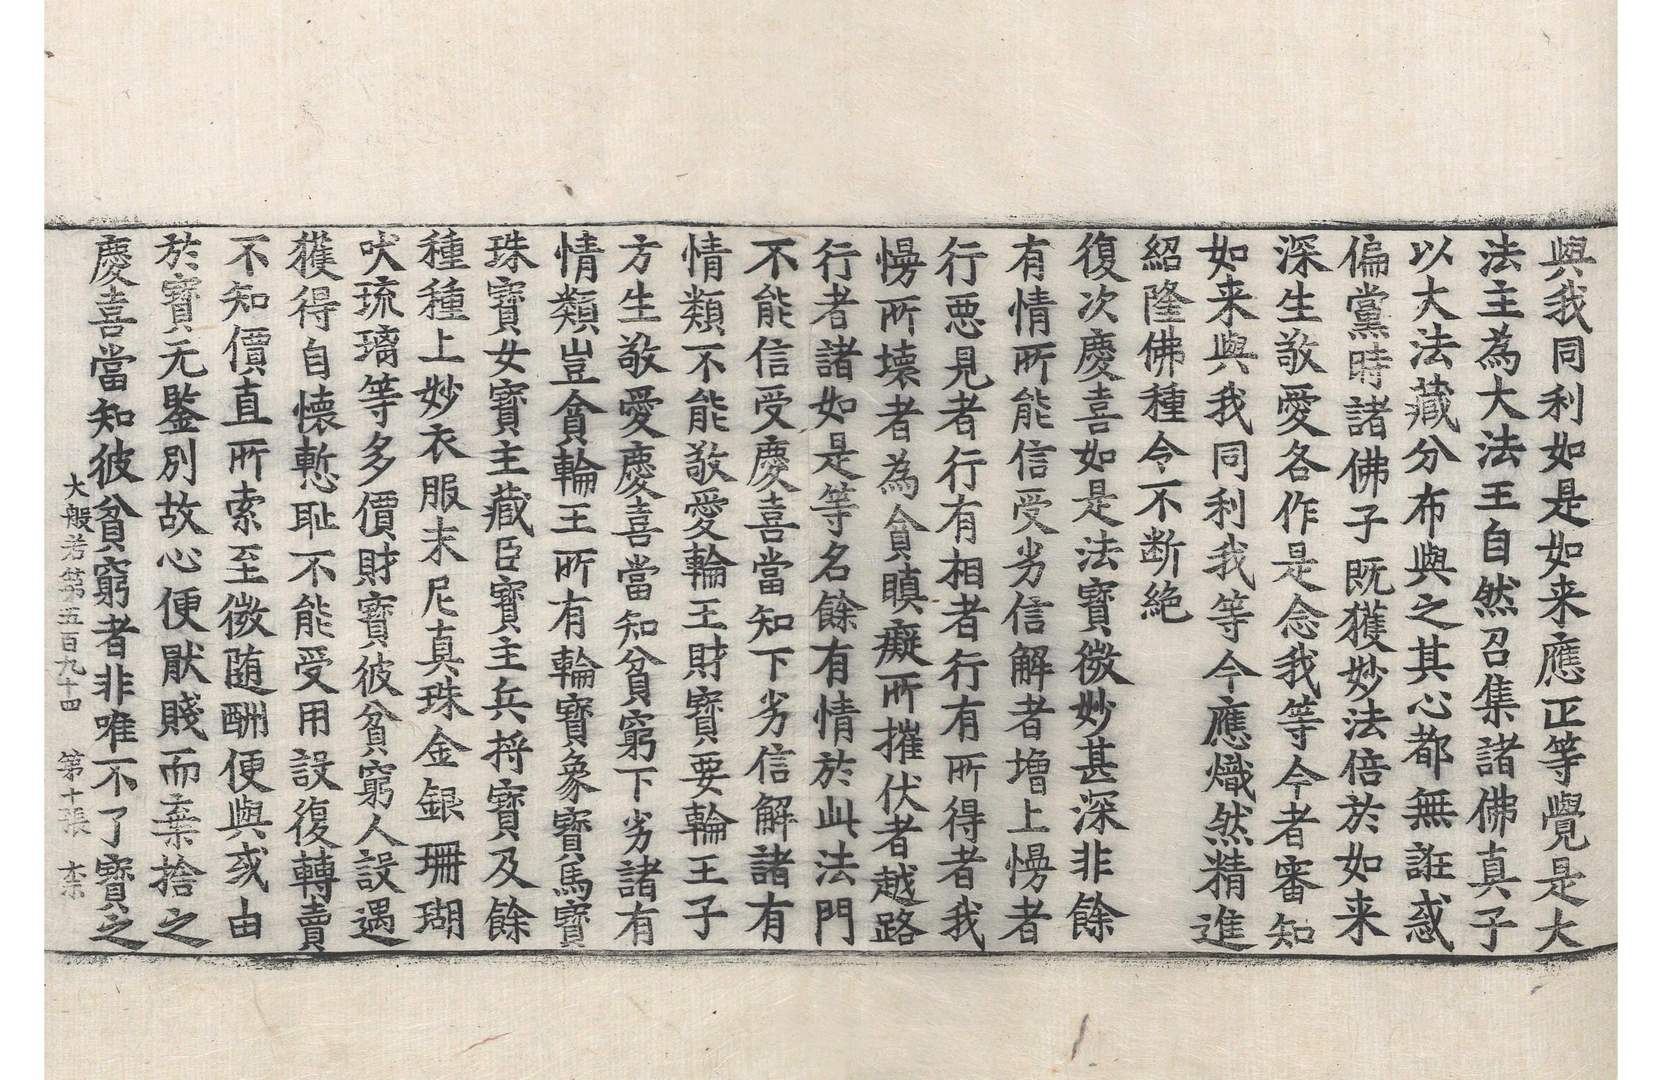 與我同利如是如来應正等覺是大
法主為大法王自然召集諸佛真子
以大法藏分布與之其心都無誑惑
偏黨時諸佛子既獲妙法倍於如来
深生敬愛各作是念我等今者審知
如来與我同利我等今應熾然精進
紹隆佛種令不断絶
復次慶喜如是法寶微妙甚深非餘
有情所能信受劣信解者增上慢者
行惡見者行有相者行有所得者我
慢所壊者為貪瞋癡所摧伏者越路
行者諸如是等名餘有情於此法門
不能信受慶喜當知下劣信解諸有
情類不能敬愛輪王財寶要輪王子
方生敬愛慶喜當知貧窮下劣諸有
情類豈貪輪王所有輪寶象寶馬寶
珠寶女寶主藏臣寶主兵将寶及餘
種種上妙衣服末尼真珠金銀珊瑚
吠琉璃等多價財寶彼貧窮人設遇
獲得自懷慙耻不能受用設復轉賣
不知價直所索至微随酬便與或由
於寶无鑒別故心便厭賤而棄捨之
慶喜當知彼貧窮者非唯不了寶之
大般若第五百九十四　第十張